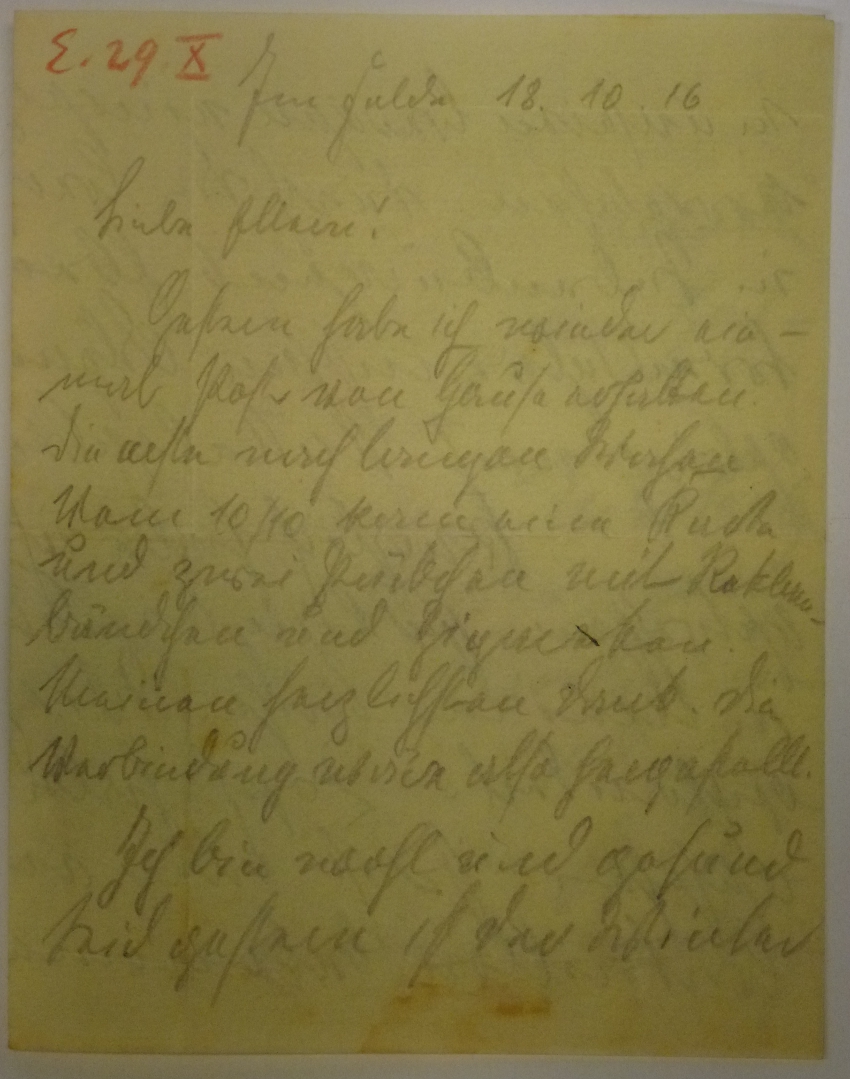 E. 29 X
Im Felde 18. 10. 16
Liebe Eltern!
Gestern habe ich wieder ein-
mal Post von Hause erhalten.
die erste nach langen Wochen
Vom 10/10 kam eine Karte
und zwei Päckchen mit
und Zigaretten.
Meinen herzlichsten Dank. Die
Verbindung wäre also hergestellt.
Ich bin wohl und gesund
Seit gestern ist der Winter